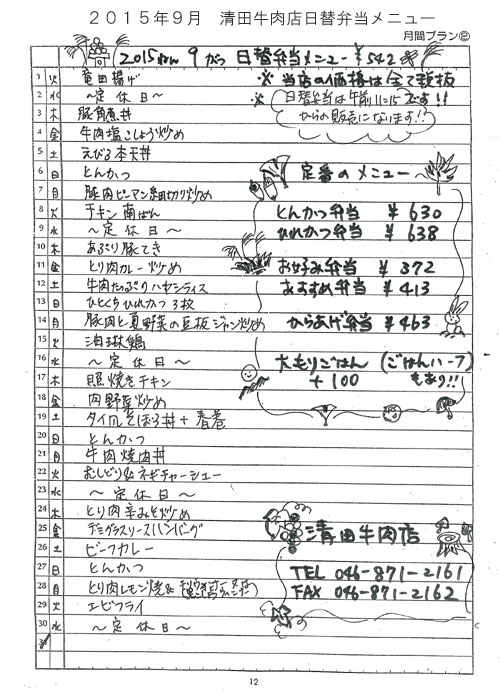 2015年9月 清田牛肉店日替弁当メニュー
月間プラン②
2015ねん 9がつ 日替弁当メニュー ¥542
1 火 竜田揚げ
※当店の価格は全て税抜
2 水 ～定休日～
※日替弁当は午前11:15
です!!
からの販売になります!!
3 木 豚角煮丼
4 金 牛肉塩こしょう炒め
5 土 えび3本天丼
6 日 とんかつ
定番のメニュー
7 月 豚肉ピーマン細切り炒め
8 火 チキン南ばん
とんかつ弁当 ¥630
9 水 ～定休日～
ひれかつ弁当 ¥638
10 木 あぶり豚てき
11 金 とり肉カレー炒め
お好み弁当 ¥372
12 土 牛肉たっぷりハヤシライス
おすすめ弁当 ¥413
13 日 ひとくちひれかつ3枚
14 月 豚肉と夏野菜の豆板ジャン炒め
からあげ弁当 ¥463
15 火 油琳鶏
16 水 ～定休日～
大もりごはん (ごはんハーフ
17 木 照焼きチキン
+100
もあり!!)
18 金 肉野菜炒め
19 土 タイ風そぼろ丼+春巻
20 日 とんかつ
21 月 牛肉焼肉丼
22 火 むしどり&ネギチャーシュー
23 水 ～定休日～
24 木 とり肉辛みそ炒め
25 金 デミグラスソースハンバーグ
清田牛肉店
26 土 ビーフカレー
27 日 とんかつ
TEL 046-871-2161
28 月 とり肉レモン焼&
FAX 046-871-2162
29 火 エビフライ
30 水 ～定休日～
31
12